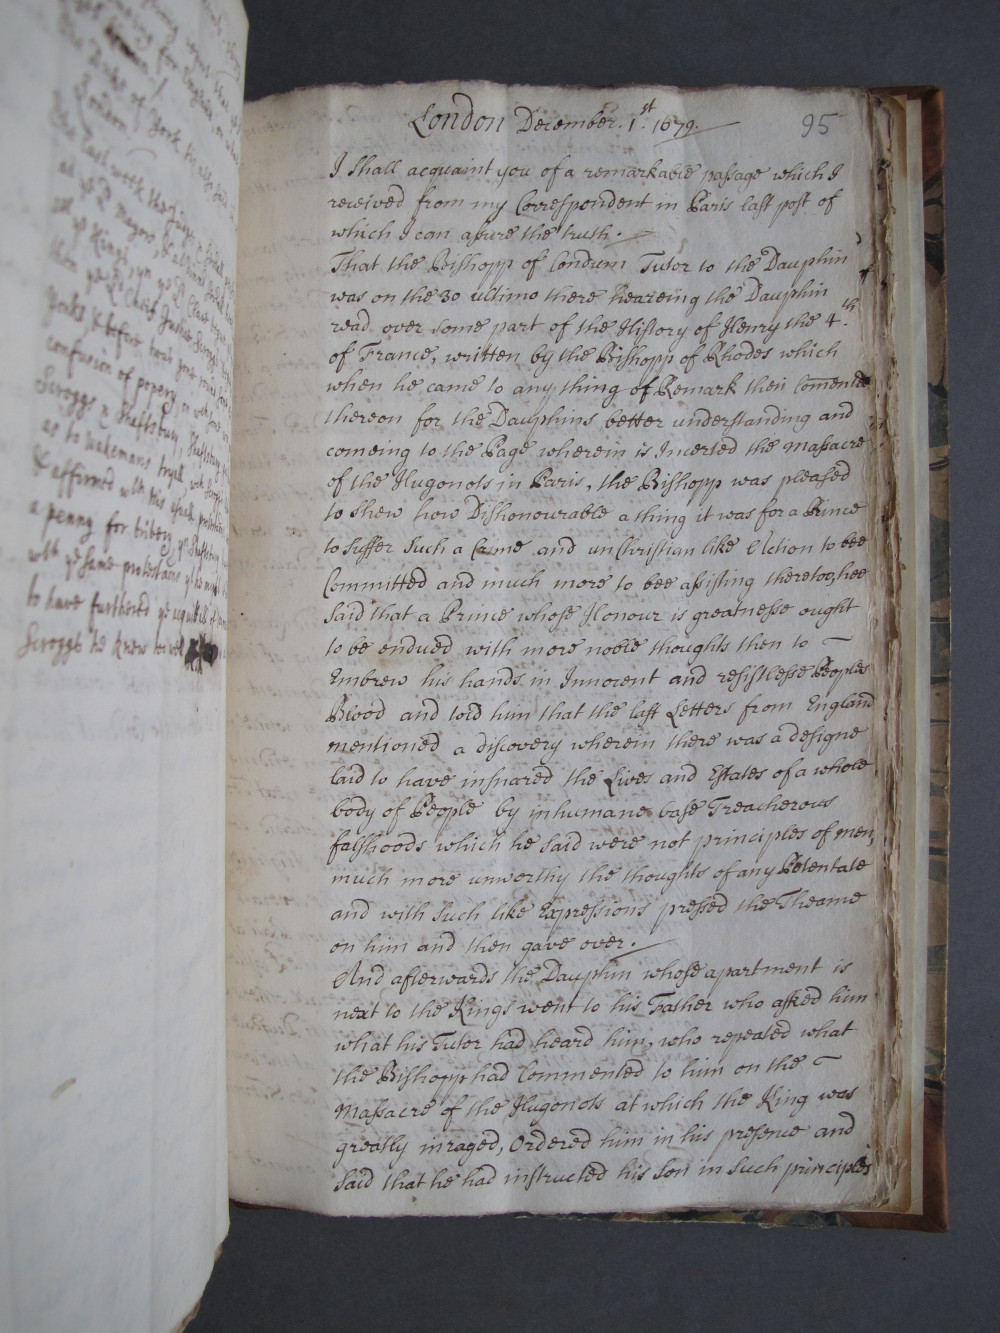 the Duke of York he also said
London
the East with the Judges
at ye Ld Mayors, & all
confusion of popery, or with
Scroggs & Shaftsbury, Shaftsbury
as to wakemans tryal, with Scroggs
& affirmed with this
a penny for bribery, yn Shaftsbury
with ye same protestations yt he
to have furthered ye acquittll of
Scroggs he knew
London December. 1st. 1679.
95
I Shall acquaint you of a remarkable passage which I
received from my Correspondent in Paris last post of
which I can assure the truth.
That the Bishopp of Condum Tutor to the Dauphin
was on the 30 ultimo there heareing the Dauphin
read over some part of the History of Henry the 4.th
of France, written by the Bishopp of Rhodes which
when he came to any thing of Remark their Comented
thereon for the Dauphins better understanding and
comeing to the Page wherein is Incerted the Massacre
of the Hugonots in Paris, the Bishopp was pleased
to shew how Dishonourable a thing it was for a Prince
to suffer Such a Crime and unChristian like Action to bee
Committed and much more to bee assisting theretoo, hee
Said that a Prince whose Honour is greatnesse ought
to be endued with more noble thoughts then to
Embrew his hands in Innocent and resistlesse Peoples
Blood and told him that the last Letters from England
mentioned a discovery wherein there was a designe
laid to have insnared the Lives and Estates of a whole
body of People by inhumane base Treacherous
falshoods which he said were not principles of men,
much more unworthy the thoughts of any Potentate
and with Such like Expressions pressed the Theame
on him and then gave over.
And afterwards the Dauphin whose apartment is
next to the Kings went to his Father who asked him
what his Tutor had heard him, who repeated what
the Bishopp had Commented to him on the
Massacre of the Hugonots at which the King was
greatly inraged, Ordered him in his presence and
Said that he had instructed his Son in Such principles